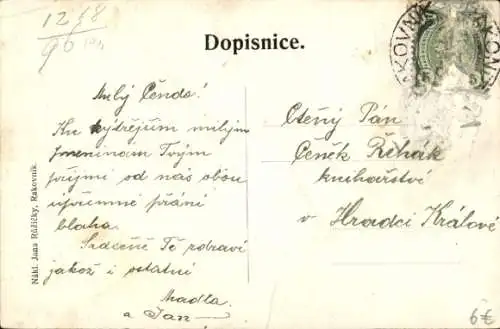 12/8
Dopisnice.
RAKOVNÍK
5
Milý Čendo!
Ku zejtřejším milým
jmeninám Tvým
přijmi od nás obou
upřímné přání
blaha.
Srdečně Tě zdraví
jakož i ostatní
Madla
a Jan
Ctěný Pán
Čeněk Řehák
knihařství
v Hradci Králové
Nákl. Jana Růžičky, Rakovník.
6€